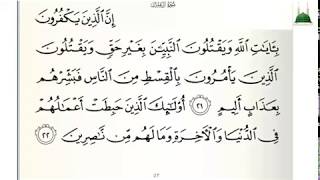 سُورَةُ آلِ عِمْرَانَ
إِنَّ ٱلَّذِينَ يَكْفُرُونَ
بِـَٔايَٰتِ ٱللَّهِ وَيَقْتُلُونَ ٱلنَّبِيِّـۧنَ بِغَيْرِ حَقٍّ وَيَقْتُلُونَ
ٱلَّذِينَ يَأْمُرُونَ بِٱلْقِسْطِ مِنَ ٱلنَّاسِ فَبَشِّرْهُم
بِعَذَابٍ أَلِيمٍ ٢١ أُو۟لَٰٓئِكَ ٱلَّذِينَ حَبِطَتْ أَعْمَٰلُهُمْ
فِى ٱلدُّنْيَا وَٱلْءَاخِرَةِ وَمَا لَهُم مِّن نَّٰصِرِينَ ٢٢
٥٢